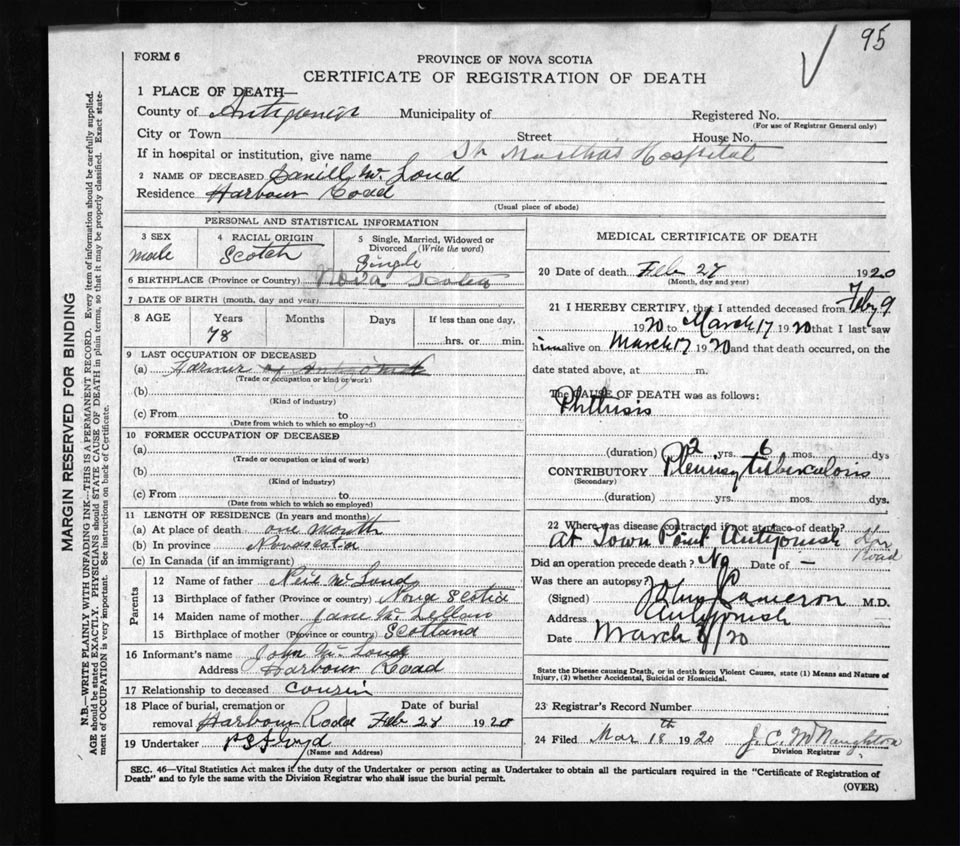 95
FORM 6
PROVINCE OF NOVA SCOTIA
CERTIFICATE OF REGISTRATION OF DEATH
1 PLACE OF DEATH—
County of Antigonish Municipality of Registered No.
(For use of Registrar General only)
City or Town Street House No.
If in hospital or institution, give name St Marthas Hospital
2 NAME OF DECEASED Daniel Mc Loud
Residence Harbour Road
(Usual place of abode)
PERSONAL AND STATISTICAL INFORMATION
3 SEX
male
4 RACIAL ORIGIN
Scotch
5 Single, Married, Widowed or
Divorced (Write the word)
Single
6 BIRTHPLACE (Province or Country) Nova Scotia
7 DATE OF BIRTH (month, day and year)
8 AGE Years Months Days If less than one day,
78 hrs. or min.
9 LAST OCCUPATION OF DECEASED
(a) Farmer of Antigonish
(Trade or occupation or kind or work)
(b)
(Kind of industry)
(c) From to
(Date from which to which so employed)
10 FORMER OCCUPATION OF DECEASED
(a)
(Trade or occupation or kind of work)
(b)
(Kind of industry)
(c) From to
(Date from which to which so employed)
11 LENGTH OF RESIDENCE (In years and months)
(a) At place of death one month
(b) In province Novascotia
(c) In Canada (if an immigrant)
Parents
12 Name of father Neil Mc Loud
13 Birthplace of father (Province or country) Nova Scotia
14 Maiden name of mother Jane Mc Lellan
15 Birthplace of mother (Province or country) Scotland
16 Informant's name John Mc Loud
Address Harbour Road
17 Relationship to deceased cousin
18 Place of burial, cremation or Date of burial
removal Harbour Road Feb 28 1920
19 Undertaker P S Floyd
(Name and Address)
MEDICAL CERTIFICATE OF DEATH
20 Date of death Feb 27 1920
(Month, day and year)
21 I HEREBY CERTIFY, that I attended deceased from Feby 9
1920 to March 17 1920 that I last saw
him alive on March 17 1920 and that death occurred, on the
date stated above, at m.
The CAUSE OF DEATH was as follows:
Phthisis
(duration) 2 yrs. 6 mos. dys
CONTRIBUTORY Pleurisy tuberculosis
(Secondary)
(duration) yrs. mos. dys.
22 Where was disease contracted if not at place of death?
At Town Point Antigonish Hbr Road
Did an operation precede death? No Date of —
Was there an autopsy? No
(Signed) John J Cameron M.D.
Address Antigonish
Date March /20
State the Disease causing Death, or in death from Violent Causes, state (1) Means and Nature of
Injury, (2) whether Accidental, Suicidal or Homicidal.
23 Registrar's Record Number
24 Filed Mar 18th 1920 J. C. McNaughton
Division Registrar
SEC. 46—Vital Statistics Act makes it the duty of the Undertaker or person acting as Undertaker to obtain all the particulars required in the "Certificate of Registration of
Death" and to fyle the same with the Division Registrar who shall issue the burial permit.
(OVER)
MARGIN RESERVED FOR BINDING
N.B.—WRITE PLAINLY WITH UNFADING INK—THIS IS A PERMANENT RECORD. Every item of information should be carefully supplied.
AGE should be stated EXACTLY. PHYSICIANS should STATE CAUSE OF DEATH in plain terms, so that it may be properly classified. Exact state-
ment of OCCUPATION is very important. See instructions on back of Certificate.